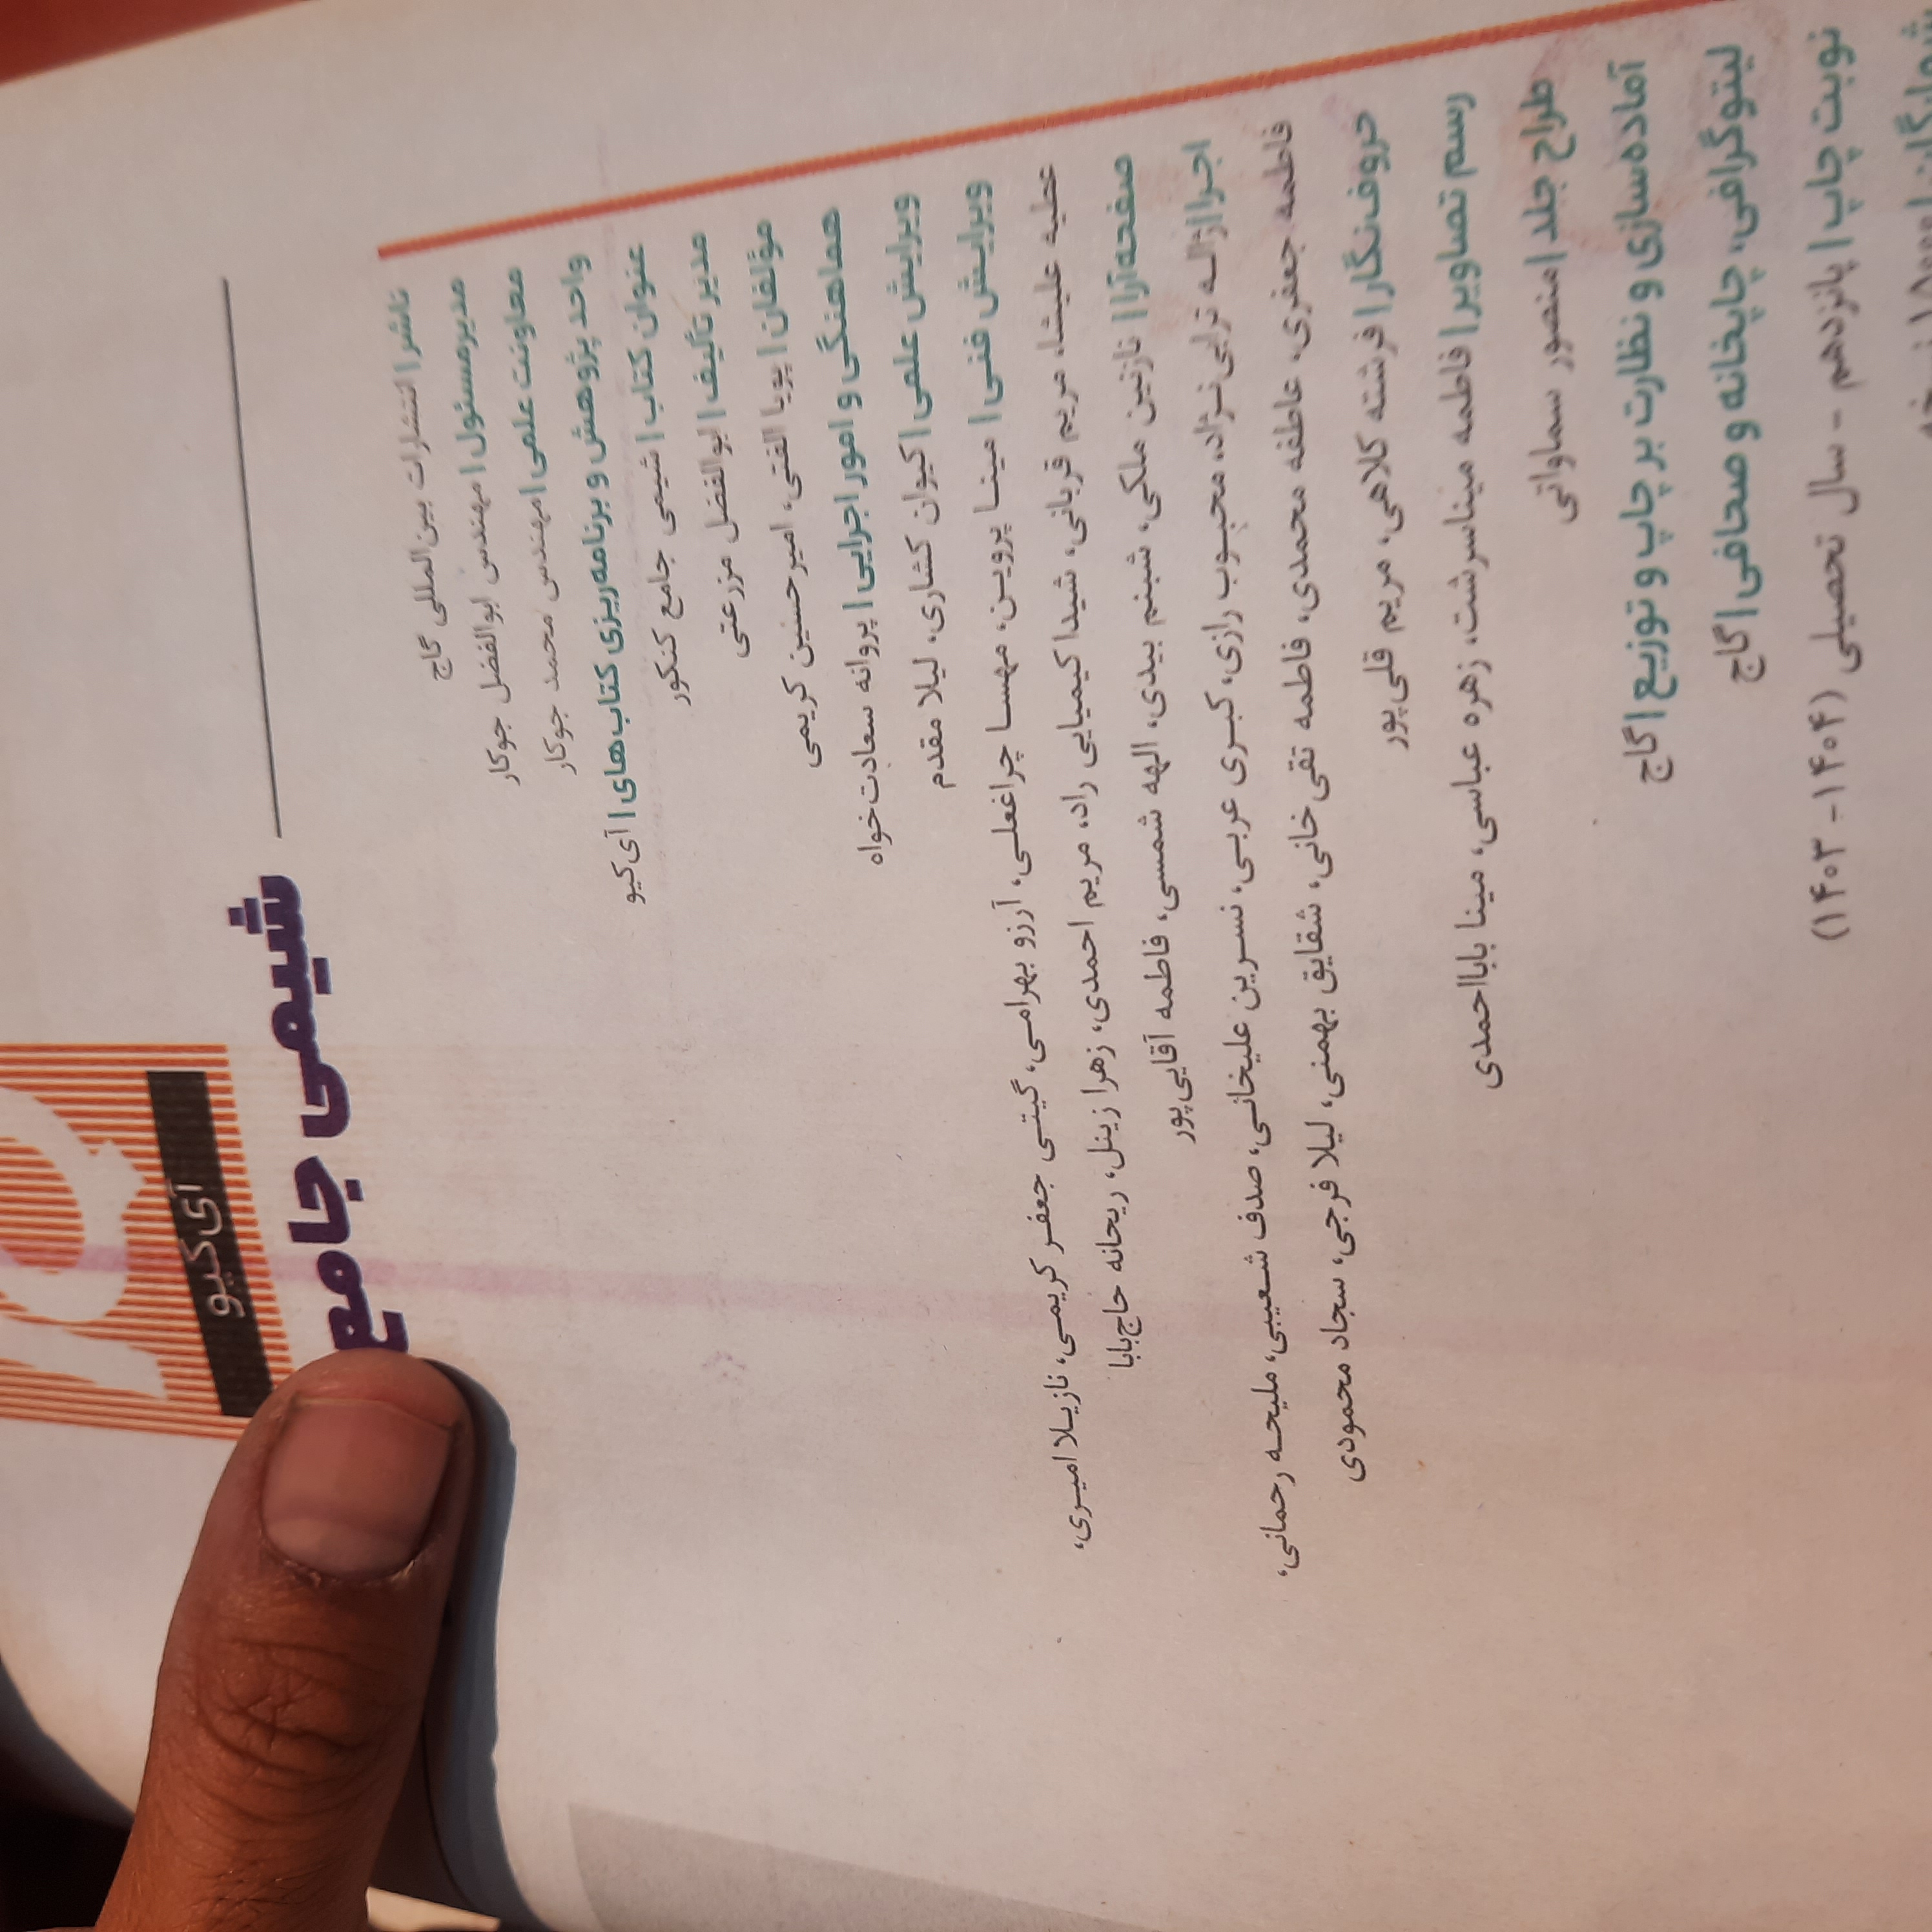 آی‌کیو
شیمی جامع
ناشر | انتشارات بین‌المللی گاج
مدیرمسئول | مهندس ابوالفضل جوکار
معاونت علمی | مهندس محمد جوکار
واحد پژوهش و برنامه‌ریزی کتاب‌های | آی‌کیو
عنوان کتاب | شیمی جامع کنکور
مدیر تألیف | ابوالفضل مزرعتی
مؤلفان | پویا الفتی، امیرحسین کریمی
هماهنگی و امور اجرایی | پروانه سعادت‌خواه
ویرایش علمی | کیوان کشاری، لیلا مقدم
ویرایش فنی | مینا پروین، مهسا چراغعلی، آرزو بهرامی، گیتی جعفر کریمی، نازیلا امیری،
عطیه علیشا، مریم قربانی، شیدا کیمیایی راد، مریم احمدی، زهرا زینل، ریحانه حاج‌بابا
صفحه‌آرا | نازنین ملکی، شبنم بیدی، الهه شمسی، فاطمه آقایی‌پور
اجرا | ژاله ترابی‌نژاد، محبوب رازی، کبری عربی، نسرین علیخانی، صدف شعیبی، ملیحه رحمانی،
فاطمه جعفری، عاطفه محمدی، فاطمه تقی خانی، شقایق بهمنی، لیلا فرجی، سجاد محمودی
حروف‌نگار | فرشته کلاهی، مریم قلی‌پور
رسم تصاویر | فاطمه میناسرشت، زهره عباسی، مینا بابااحمدی
طراح جلد | منصور سماواتی
آماده‌سازی و نظارت بر چاپ و توزیع | گاج
لیتوگرافی، چاپخانه و صحافی | گاج
نوبت چاپ | پانزدهم - سال تحصیلی (۱۴۰۴-۱۴۰۳)